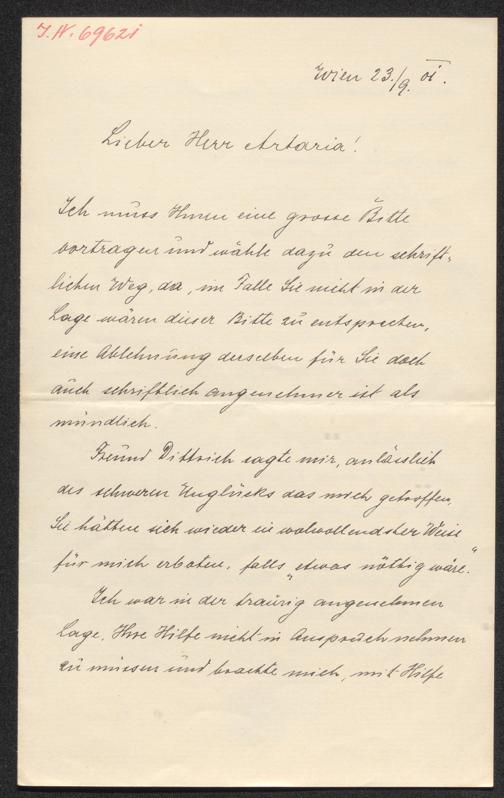 J.N. 69621
Wien 23./9. 01.
Lieber Herr Artaria!
Ich muss Ihnen eine grosse Bitte
vortragen und wähle dazu den schrift-
lichen Weg, da, im Falle Sie nicht in der
Lage wären dieser Bitte zu entsprechen,
eine Ablehnung derselben für Sie doch
auch schriftlich angenehmer ist als
mündlich.
Freund Dittrich sagte mir, anlässlich
des schweren Unglücks das mich getroffen,
Sie hätten sich wieder in wolwollendster Weise
für mich erboten, falls „etwas nöthig wäre."
Ich war in der traurig angenehmen
Lage, Ihre Hilfe nicht in Anspruch nehmen
zu müssen und brachte mich, mit Hilfe